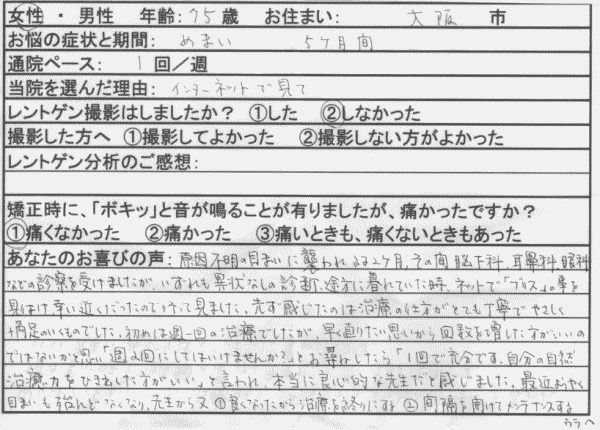 女性 ・ 男性 年齢: 75歳 お住まい: 大阪 市
お悩の症状と期間: めまい 5ヶ月間
通院ペース: 1回／週
当院を選んだ理由: インターネットで見て
レントゲン撮影はしましたか？ ①した ②しなかった
撮影した方へ ①撮影してよかった ②撮影しない方がよかった
レントゲン分析のご感想:
矯正時に、「ボキッ」と音が鳴ることが有りましたが、痛かったですか？
①痛くなかった ②痛かった ③痛いときも、痛くないときもあった
あなたのお喜びの声: 原因不明の目まいに襲われる2ヶ月、その間脳下科、耳鼻科、眼科
などの診察を受けましたが、いずれも異状なしの診断、途方に暮れていた時、ネットで「プラス」の事を
見つけ幸い近くだったので行って見ました。先ず感じたのは治療の仕方がとても丁寧でやさしく
満足のいくものでした。初めは週一回の治療でしたが、早く直りたい思いから回数を増した方がいいの
ではないかと思い「週2回にしてはいけませんか?」とお尋ねしたら「1回で充分です。自分の自然
治癒力をひき出した方がいい」と言われ、本当に良心的な先生だと感じました。最近ようやく
目まいも殆んどなくなり、先生から又 ①良くなったから治療を終りにする ②間隔を開けてメンテナンスする
ウラへ